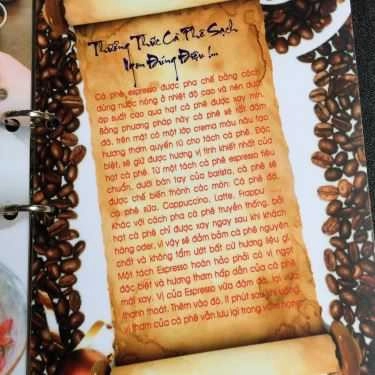 Thưởng Thức Cà Phê Sạch
Ngon Đúng Điệu !...
Cà phê espresso được pha chế bằng cách
dùng nước nóng ở nhiệt độ cao và nén dưới
áp suất cao qua hạt cà phê được xay mịn.
Bằng phương pháp này cà phê sẽ rất đậm
đà, trên mặt có một lớp crema màu nâu tạo
hương thơm quyến rũ cho tách cà phê. Đặc
biệt, sẽ giữ được hương vị tinh khiết nhất của
hạt cà phê. Từ một tách cà phê espresso tiêu
chuẩn, dưới bàn tay của barista, cà phê sẽ
được chế biến thành các món: Cà phê đá,
cà phê sữa, Cappuccino, Latte, Frappu
khác với cách pha cà phê truyền thống, bởi
hạt cà phê chỉ được xay ngay sau khi khách
hàng oder, vì vậy sẽ đảm bảo cà phê nguyên
chất và không tẩm ướt bất cứ hương liệu gì.
Một tách Espresso hoàn hảo phải có vị ngọt
đặc biệt và hương thơm hấp dẫn của cà phê
mới xay. Vị của Espresso vừa đậm đà, lại
thanh thoát. Thêm vào đó, ít phút sau khi uống
vị thơm của cà phê vẫn lưu lại trong vòm họng